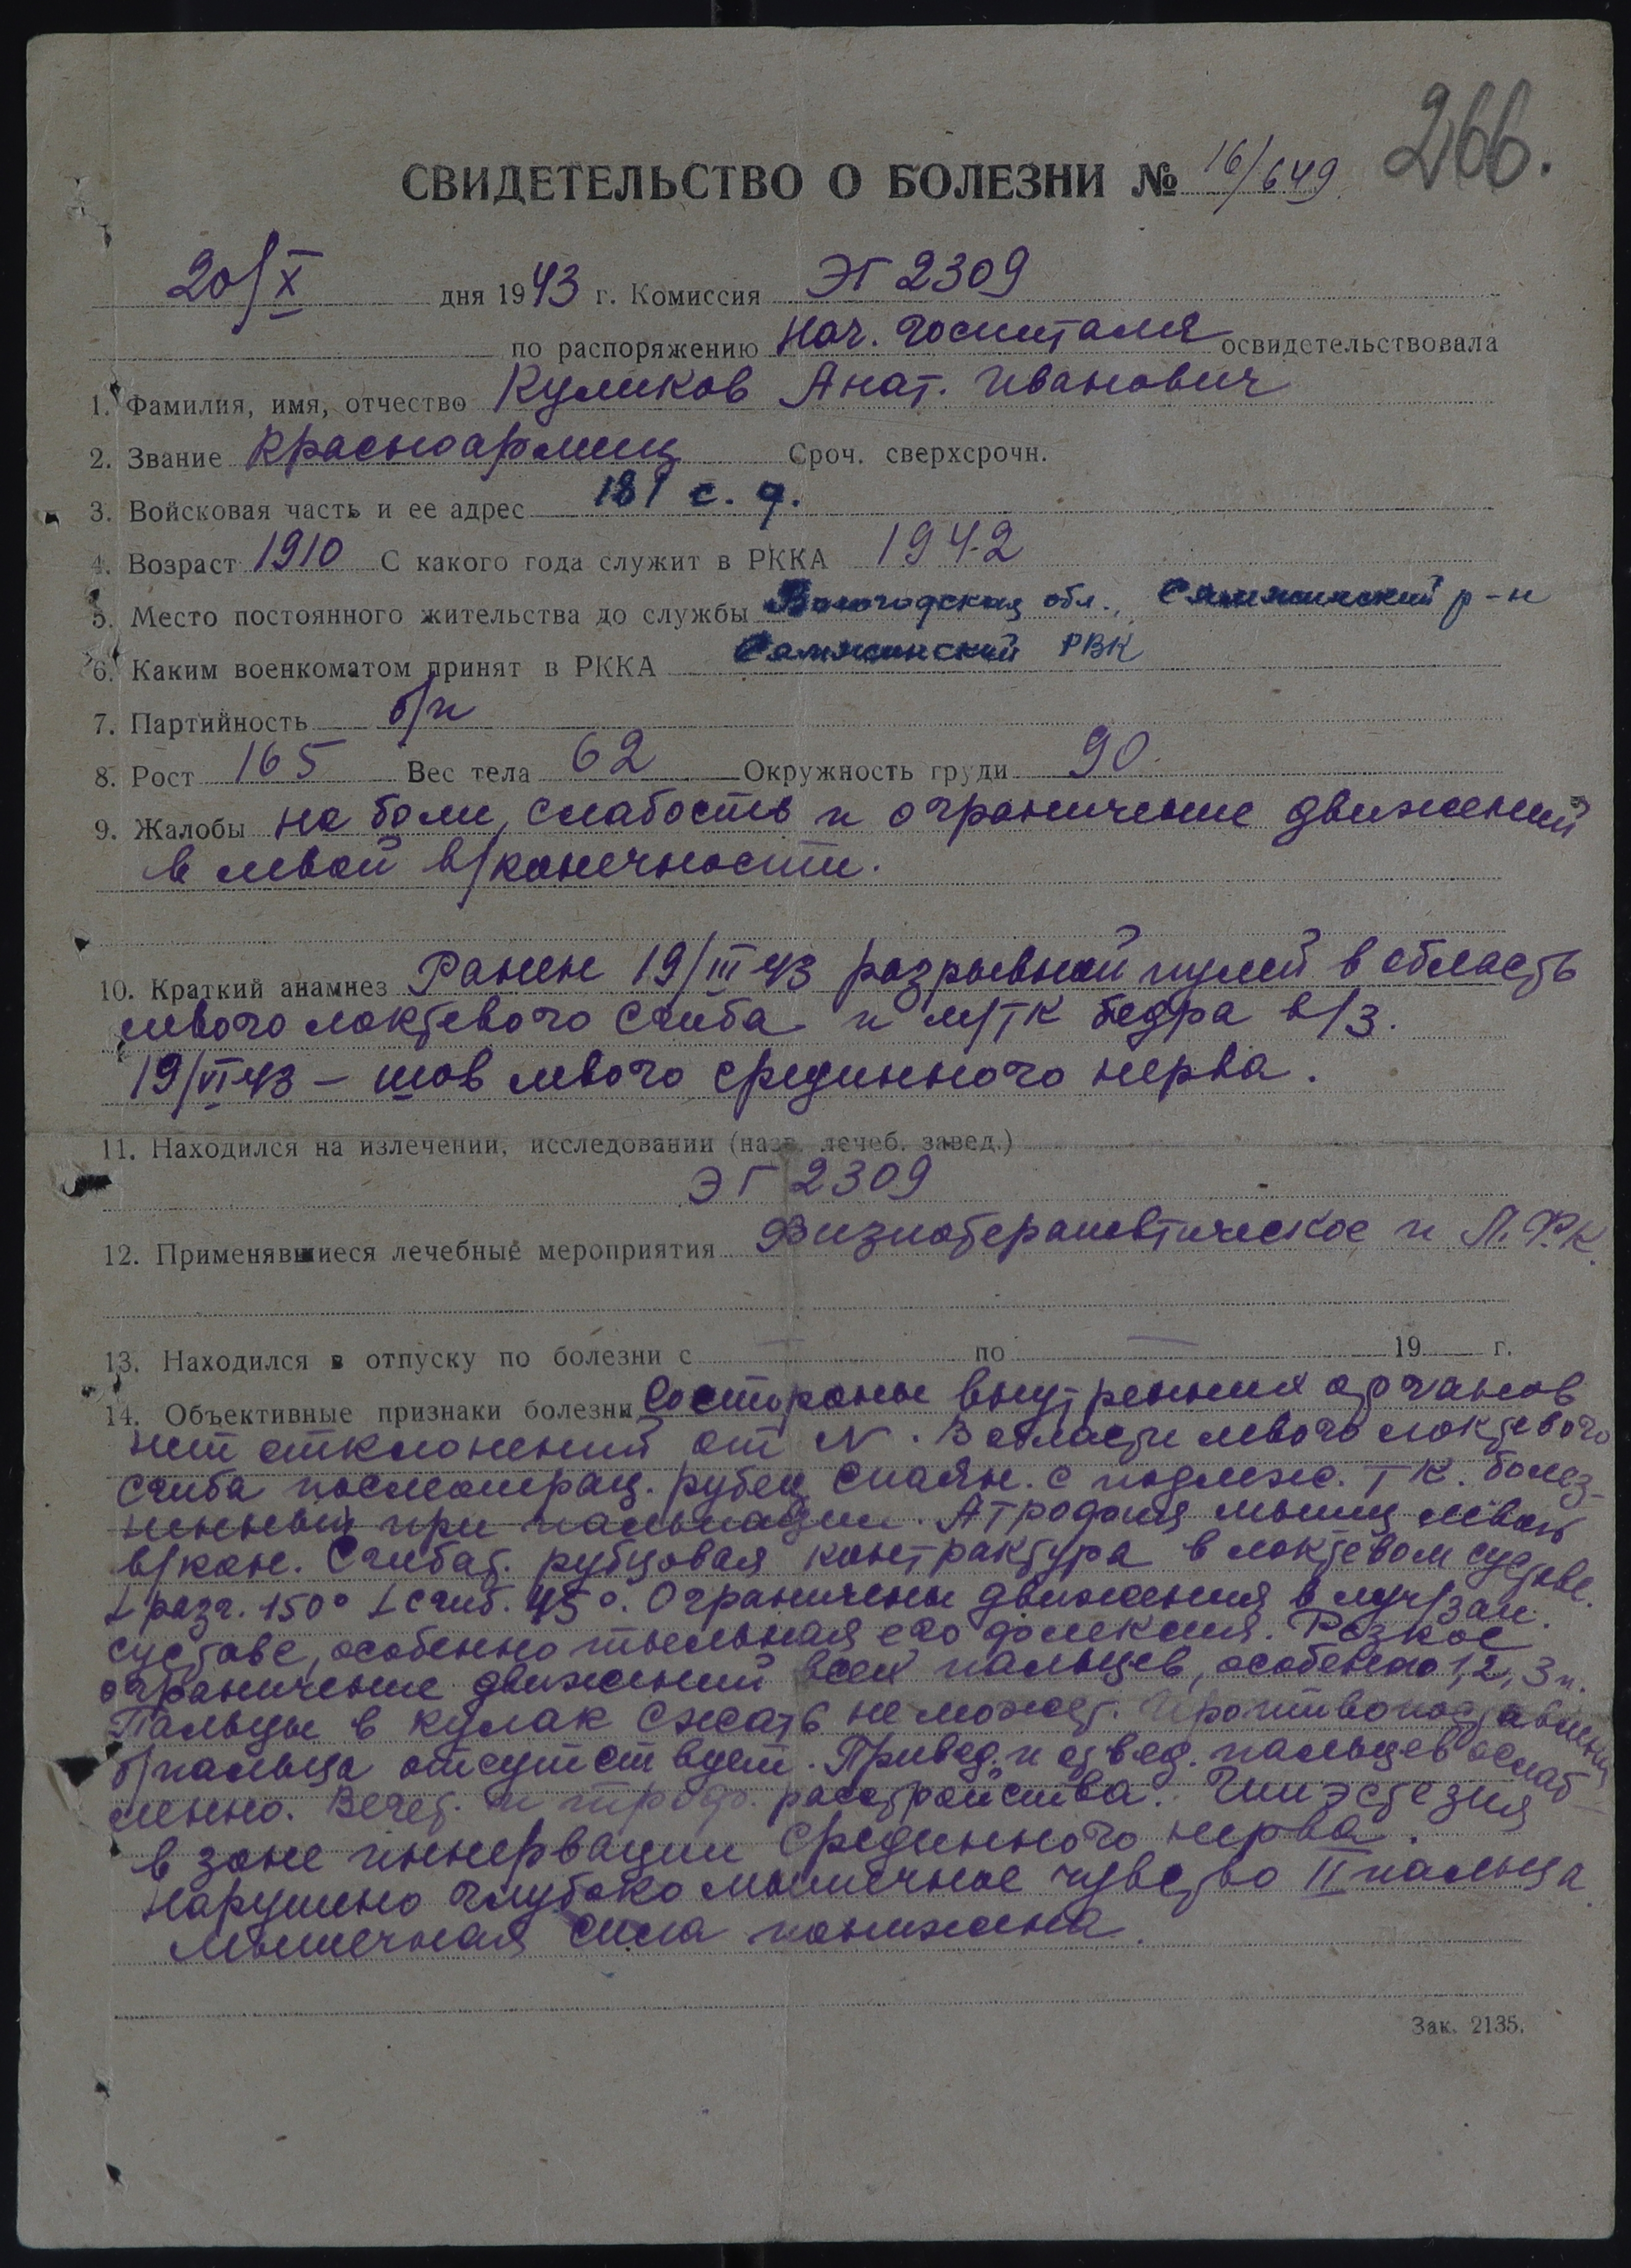 266.
СВИДЕТЕЛЬСТВО О БОЛЕЗНИ № 16/649.
20/X дня 1943 г. Комиссия ЭГ 2309
по распоряжению нач. госпиталя освидетельствовала
1. Фамилия, имя, отчество Куликов Анат. Иванович
2. Звание красноармеец Сроч. сверхсрочн.
3. Войсковая часть и ее адрес 181 с. д.
4. Возраст 1910 С какого года служит в РККА 1942
5. Место постоянного жительства до службы Вологодская обл., Сямженский р-н
6. Каким военкоматом принят в РККА Сямженский РВК
7. Партийность б/п
8. Рост 165 Вес тела 62 Окружность груди 90.
9. Жалобы на боли, слабость и ограничение движений
в левой в/конечности.
10. Краткий анамнез Ранен 19/III-43 разрывной пулей в область
левого локтевого сгиба и м/тк бедра в/з.
19/VI-43 – шов левого срединного нерва.
11. Находился на излечении, исследовании (назв. лечеб. завед.)
ЭГ 2309
12. Применявшиеся лечебные мероприятия Физиотерапевтическое и Л.Ф.К.
13. Находился в отпуску по болезни с — по — 19 г.
14. Объективные признаки болезни Со стороны внутренних органов
нет отклонений от N. В области левого локтевого
сгиба послеоперац. рубец спаян. с подлеж. тк. болез-
ненный при пальпации. Атрофия мышц левой
в/кон. Сгибат. рубцовая контрактура в локтевом суставе.
∠ разг. 150° ∠ сгиб. 45°. Ограничены движения в луч/зап.
суставе, особенно тыльная его флексия. Резкое
ограничение движений всех пальцев, особенно 1, 2, 3 п.
Пальцы в кулак сжать не может. Противопоставление
б/пальца отсутствует. Привед. и отвед. пальцев ослаб-
ленно. Вегет. и троф. расстройства. Гипэстезия
в зоне иннервации срединного нерва.
Нарушено глубоко мышечное чувство II пальца.
Мышечная сила понижена.
Зак. 2135.